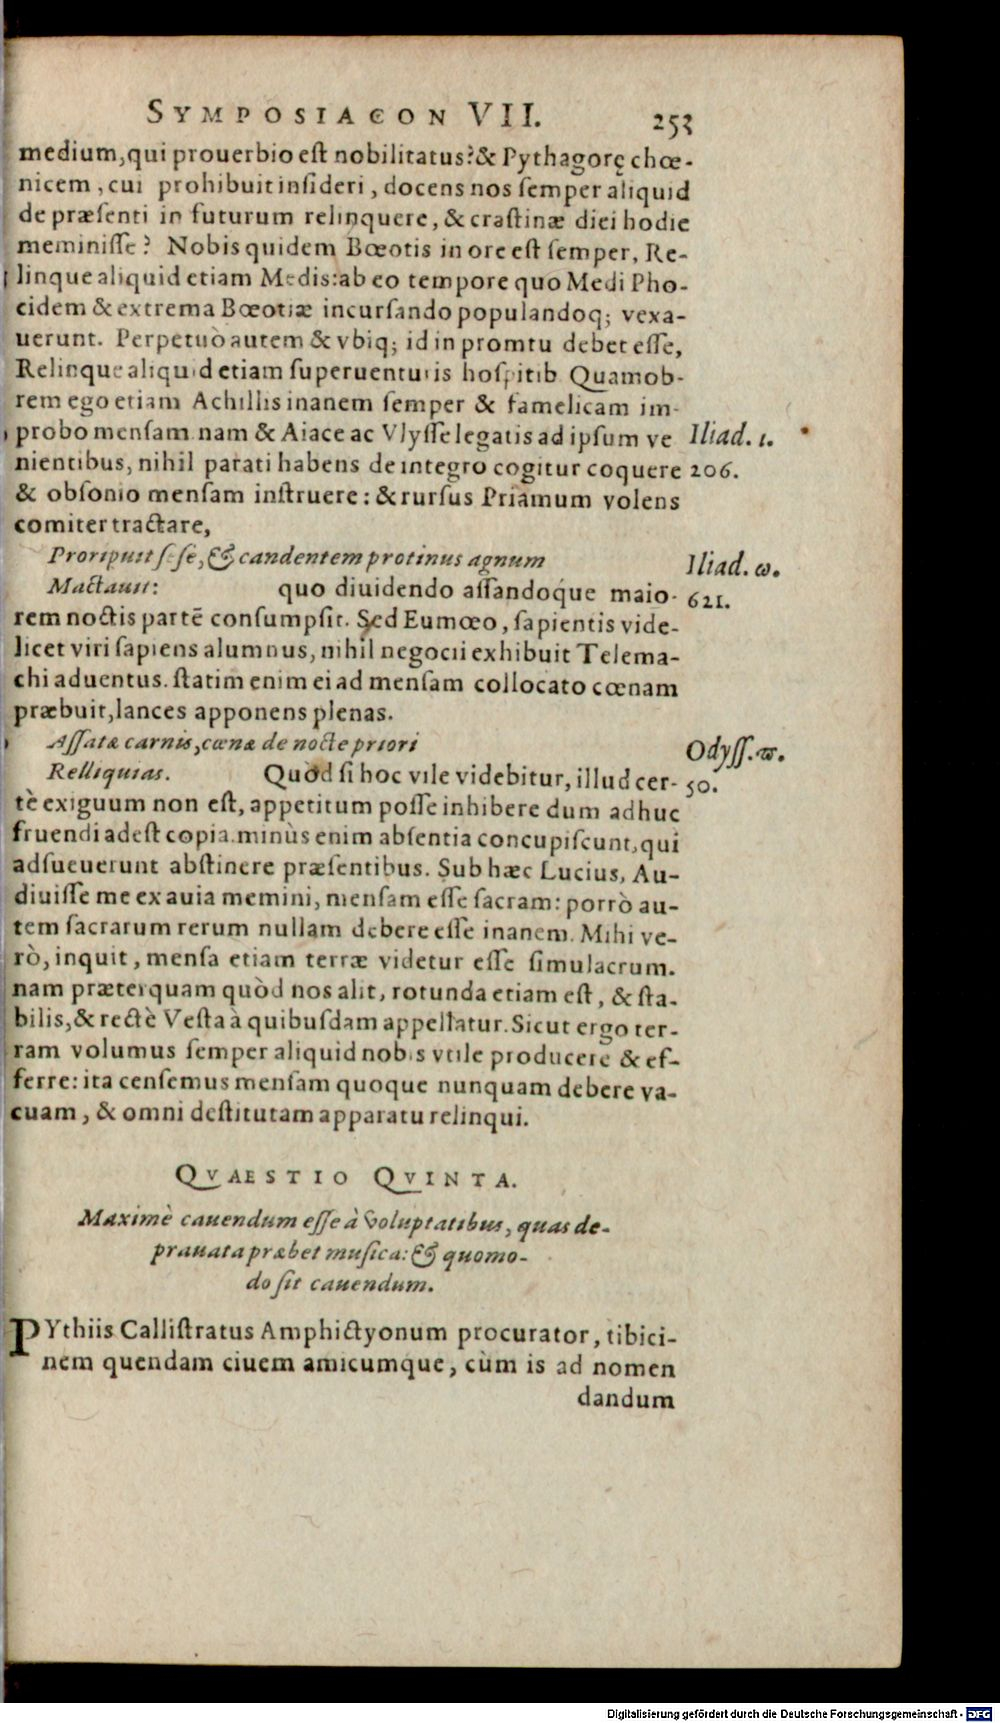 SYMPOSIACON VII. 253
medium, qui prouerbio est nobilitatus? & Pythagorę chœ-
nicem, cui prohibuit insideri, docens nos semper aliquid
de præsenti in futurum relinquere, & crastinæ diei hodie
meminisse? Nobis quidem Bœotis in ore est semper, Re-
linque aliquid etiam Medis: ab eo tempore quo Medi Pho-
cidem & extrema Bœotiæ incursando populandoq; vexa-
uerunt. Perpetuò autem & vbiq; id in promtu debet esse,
Relinque aliquid etiam superuenturis hospitib. Quamob-
rem ego etiam Achillis inanem semper & famelicam im-
probo mensam. nam & Aiace ac Vlysse legatis ad ipsum ve Iliad. ι.
nientibus, nihil parati habens de integro cogitur coquere 206.
& obsonio mensam instruere: & rursus Priamum volens
comiter tractare,
Proripuit sese, & candentem protinus agnum Iliad. ω.
Mactauit: quo diuidendo assandoque maio- 621.
rem noctis partē consumpsit. Sed Eumœo, sapientis vide-
licet viri sapiens alumnus, nihil negocii exhibuit Telema-
chi aduentus. statim enim ei ad mensam collocato cœnam
præbuit, lances apponens plenas.
Assatæ carnis, cœnæ de nocte priori Odyss. ϖ.
Relliquias. Quòd si hoc vile videbitur, illud cer- 50.
tè exiguum non est, appetitum posse inhibere dum adhuc
fruendi adest copia. minùs enim absentia concupiscunt, qui
adsueuerunt abstinere præsentibus. Sub hæc Lucius, Au-
diuisse me ex auia memini, mensam esse sacram: porrò au-
tem sacrarum rerum nullam debere esse inanem. Mihi ve-
rò, inquit, mensa etiam terræ videtur esse simulacrum.
nam præterquam quòd nos alit, rotunda etiam est, & sta-
bilis, & rectè Vesta à quibusdam appellatur. Sicut ergo ter-
ram volumus semper aliquid nobis vtile producere & ef-
ferre: ita censemus mensam quoque nunquam debere va-
cuam, & omni destitutam apparatu relinqui.
QVAESTIO QVINTA.
Maximè cauendum esse à voluptatibus, quas de-
prauata præbet musica: & quomo-
do sit cauendum.
PYthiis Callistratus Amphictyonum procurator, tibici-
nem quendam ciuem amicumque, cùm is ad nomen
dandum
Digitalisierung gefördert durch die Deutsche Forschungsgemeinschaft - DFG